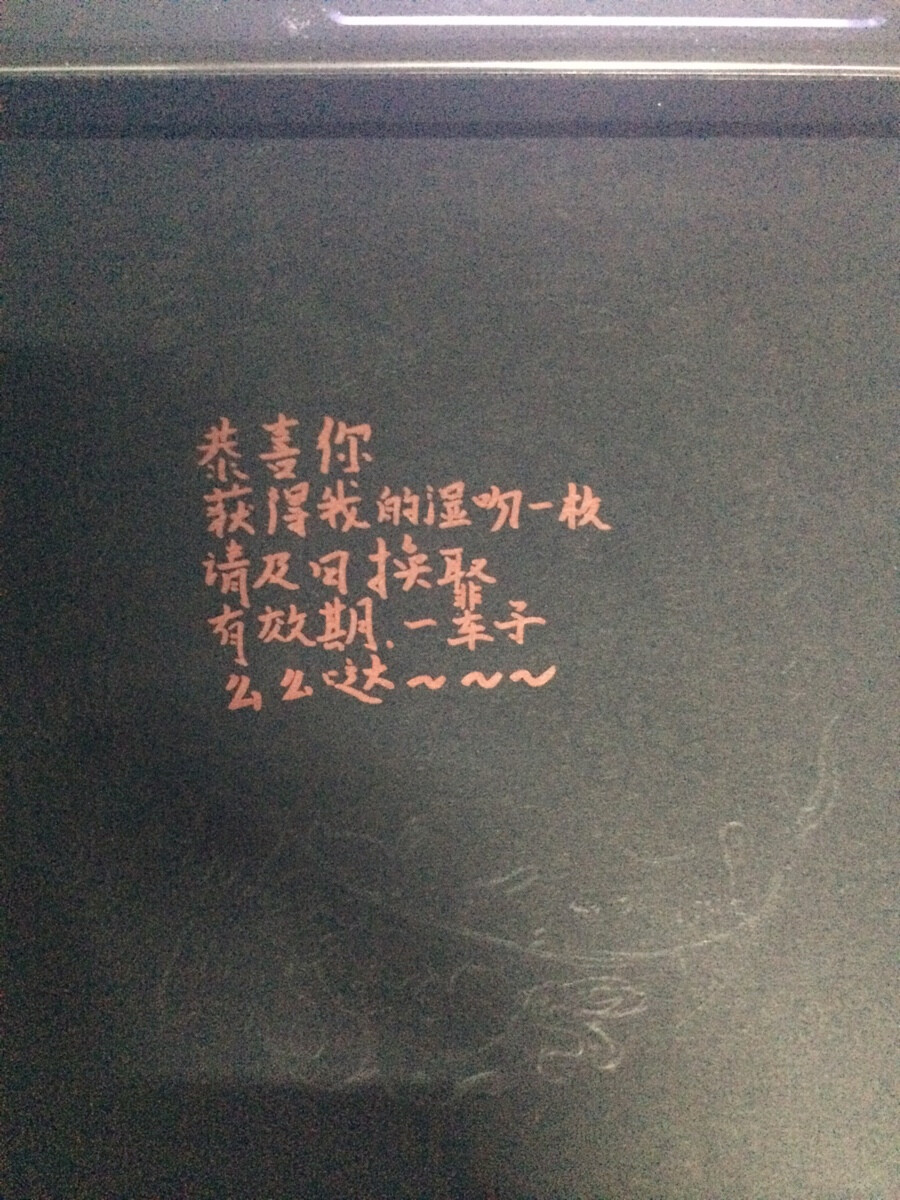 恭喜你
获得我的湿吻一枚
请及日换取
有效期.一辈子
么么哒~~~